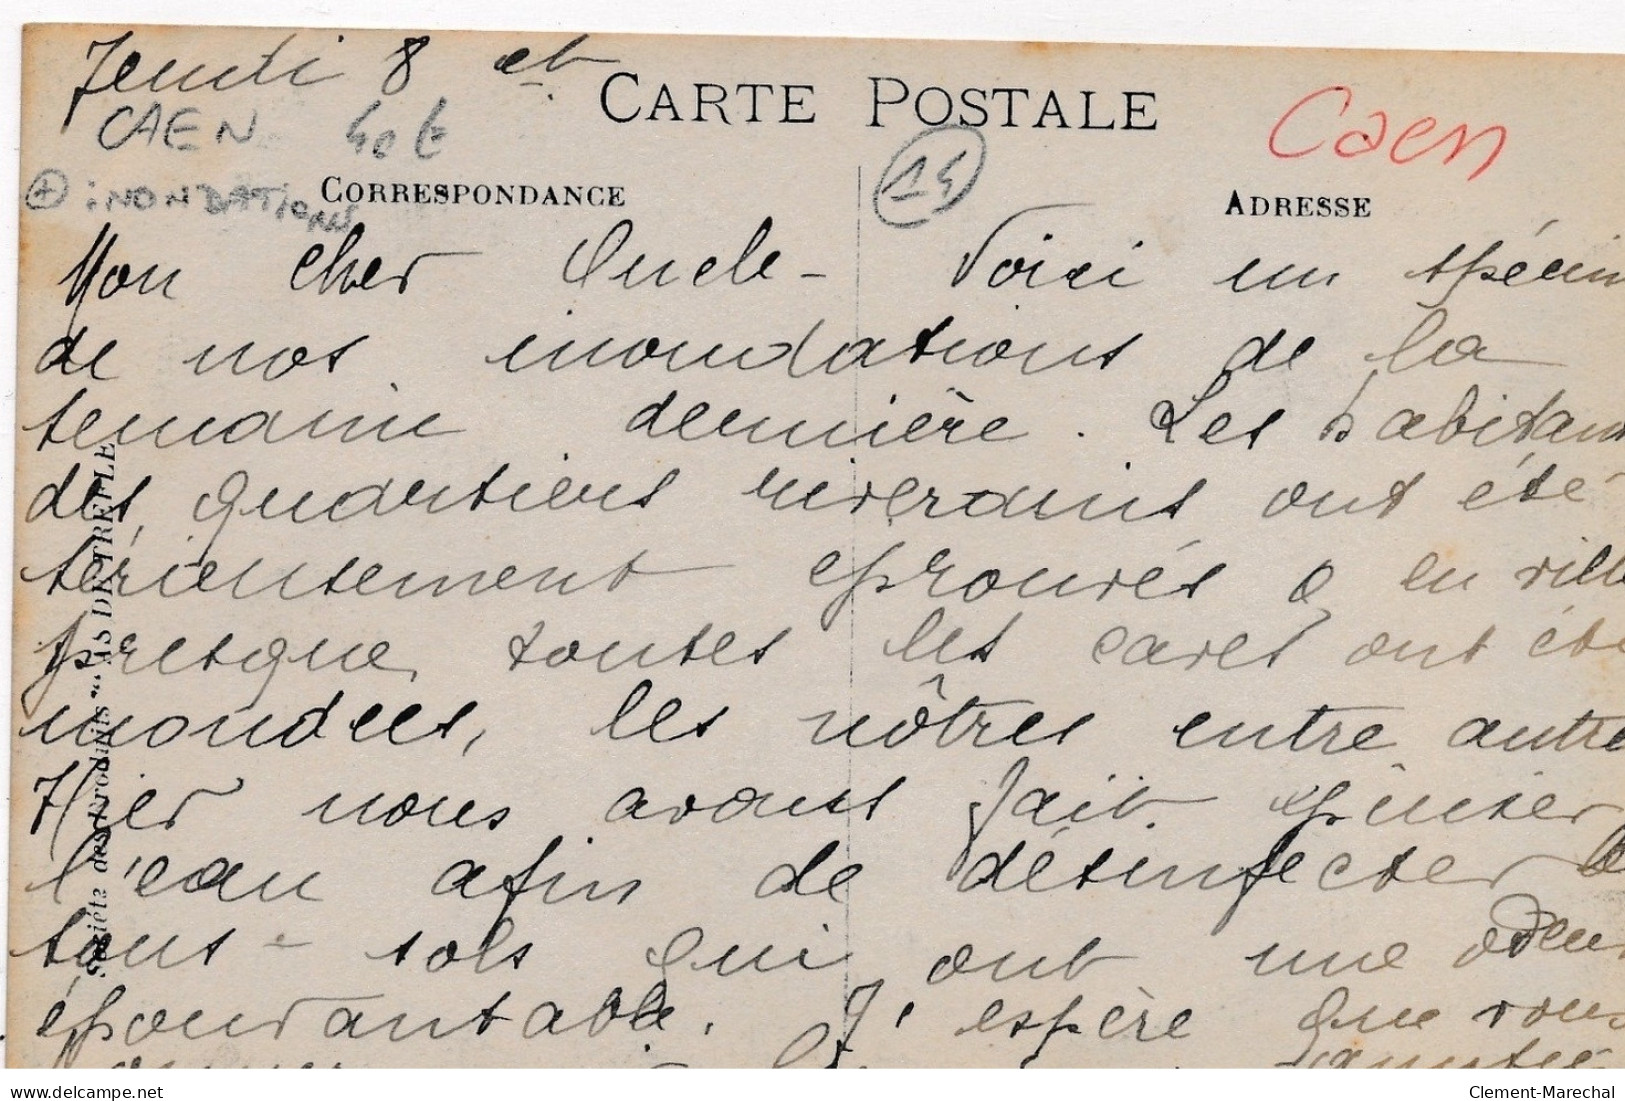 Jeudi 8 ct.
CARTE POSTALE
Caen
CAEN 40 €
14
+ INONDATIONS
CORRESPONDANCE
ADRESSE
Mon cher Oncle - Voici un spécim
de nos inondations de la
semaine dernière. Les habitan
des quartiers riverains ont été
sérieusement éprouvés & en ville
presque toutes les caves ont été
inondées, les nôtres entre autre
Hier nous avons fait épuiser
l'eau afin de désinfecter le
sous-sols qui ont une odeu
épouvantable. J'espère que vous
Société des Produits "AS DE TREFLE
Clement-Marechal